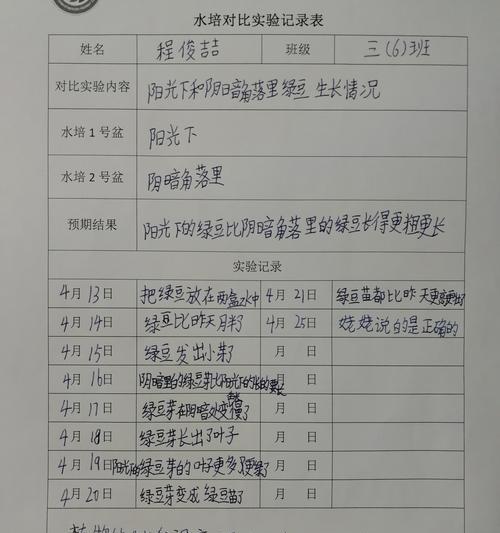 水培对比实验记录表
姓名 程俊喆 班级 三(6)班
对比实验内容 阳光下和阴暗角落里绿豆生长情况
水培1号盆 阳光下
水培2号盆 阴暗角落里
预期结果 阳光下的绿豆比阴暗角落里的绿豆长得更粗更长
实验记录
4月13日 把绿豆放在两盒水中 4月21日 绿豆苗都比昨天更
4月14日 绿豆比昨天月半了 4月25日 姥姥说的是正确的
4月15日 绿豆发出小芽了 月 日
4月16日 阴暗里的绿豆芽比阳光下的 长 月 日
4月17日 绿豆芽在阴暗处变 了 月 日
4月18日 绿豆芽长出了叶子 月 日
4月19日 阳光 绿豆芽的叶子更多 了 月 日
4月20日 绿豆芽变成绿豆苗了 月 日